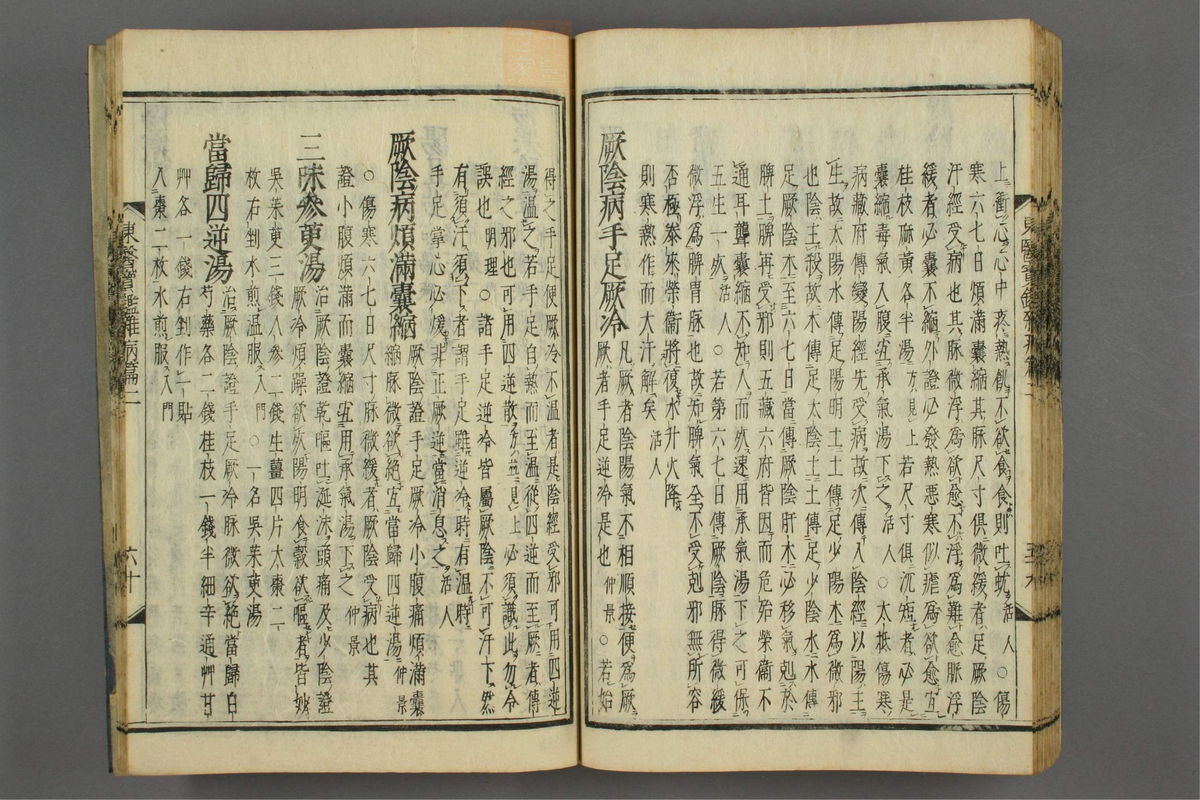 上衝心心中疼熱飢不欲食食則吐蚘活人○傷
寒六七日煩滿囊縮其脉尺寸俱微緩者足厥陰
汗經受病也其脉微浮爲欲愈不浮爲難愈脈浮
緩者必囊不縮外證必發熱惡寒似瘧爲欲愈宜
桂枝麻黃各半湯方見上若尺寸俱沉短者必是
囊縮毒氣入腹宜承氣湯下之活人○太抵傷寒
病藏府傳變陽經先受病故次傳入陰經以陽主
生故太陽水傳足陽明土土傳足少陽木爲微邪
也陰主殺故木傳足太陰土土傳足少陰水水傳
足厥陰木至六七日當傳厥陰肝木必移氣剋於
脾土脾再受邪則五藏六府皆因而危殆榮衞不
通耳聾囊縮不知人而死速用承氣湯下之可保
五生一死活人○若第六七日傳厥陰脈得微緩
微浮爲脾胃脉也故知脾氣全不受剋邪無所容
否極泰來榮衞將復水升火降
則寒熱作而大汗解矣活人
厥陰病手足厥冷凡厥者陰陽氣不相順接便爲厥
厥者手足逆冷是也仲景○若始
得之手足便厥冷不溫者是陰經受邪可用四逆
湯溫之若手足自熱而至溫從四逆而至厥者傳
經之邪也可用四逆散方並見上必須識此勿令
誤也明理○諸手足逆冷皆屬厥陰不可汗下然
有須汗須下者謂手足雖逆冷時有溫時
手足掌心必煖非正厥逆當消息之活人
厥陰病煩滿囊縮厥陰證手足厥冷小腹痛煩滿囊
縮脉微欲絕宜當歸四逆湯仲景
○傷寒六七日尺寸脉微緩者厥陰受病也其
證小腹煩滿而囊縮宜用承氣湯下之仲景
三味參萸湯治厥陰證乾嘔吐涎沫頭痛及少陰證
厥冷煩躁欲死陽明食穀欲嘔者皆妙
吳茱萸三錢人參二錢生薑四片太棗二
枚右剉水煎溫服入門○一名吳茱萸湯
當歸四逆湯治厥陰證手足厥冷脉微欲絕當歸白
芍藥各二錢桂枝一錢半細辛通艸甘
艸各一錢右剉作一貼
入棗二枚水煎服入門
東醫寶鑑雜病篇二
六十